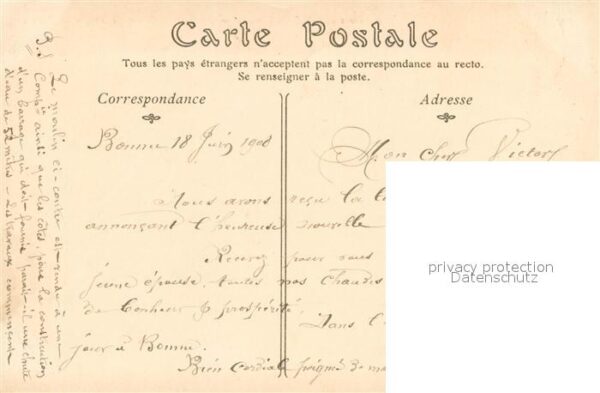 Carte Postale
Tous les pays étrangers n'acceptent pas la correspondance au recto.
Se renseigner à la poste.
Correspondance
Adresse
Bonnu 18 Juin 1908
Mon cher Victor
Nous avons reçu la
annonçant l'heureuse nouvelle
Recevez pour vous
jeune épouse, toutes nos chaudes
de bonheur & prospérité.
Dans l'
jour à Bonnu.
Bien cordiale poignée de
P.S.
Le moulin ci-contre est vendu à une
ainsi que les côtes, pour la construction
d'un barrage qui doit fournir paraît-il une chute
d'eau de 52 mètres - Les travaux commencent
privacy protection
Datenschutz